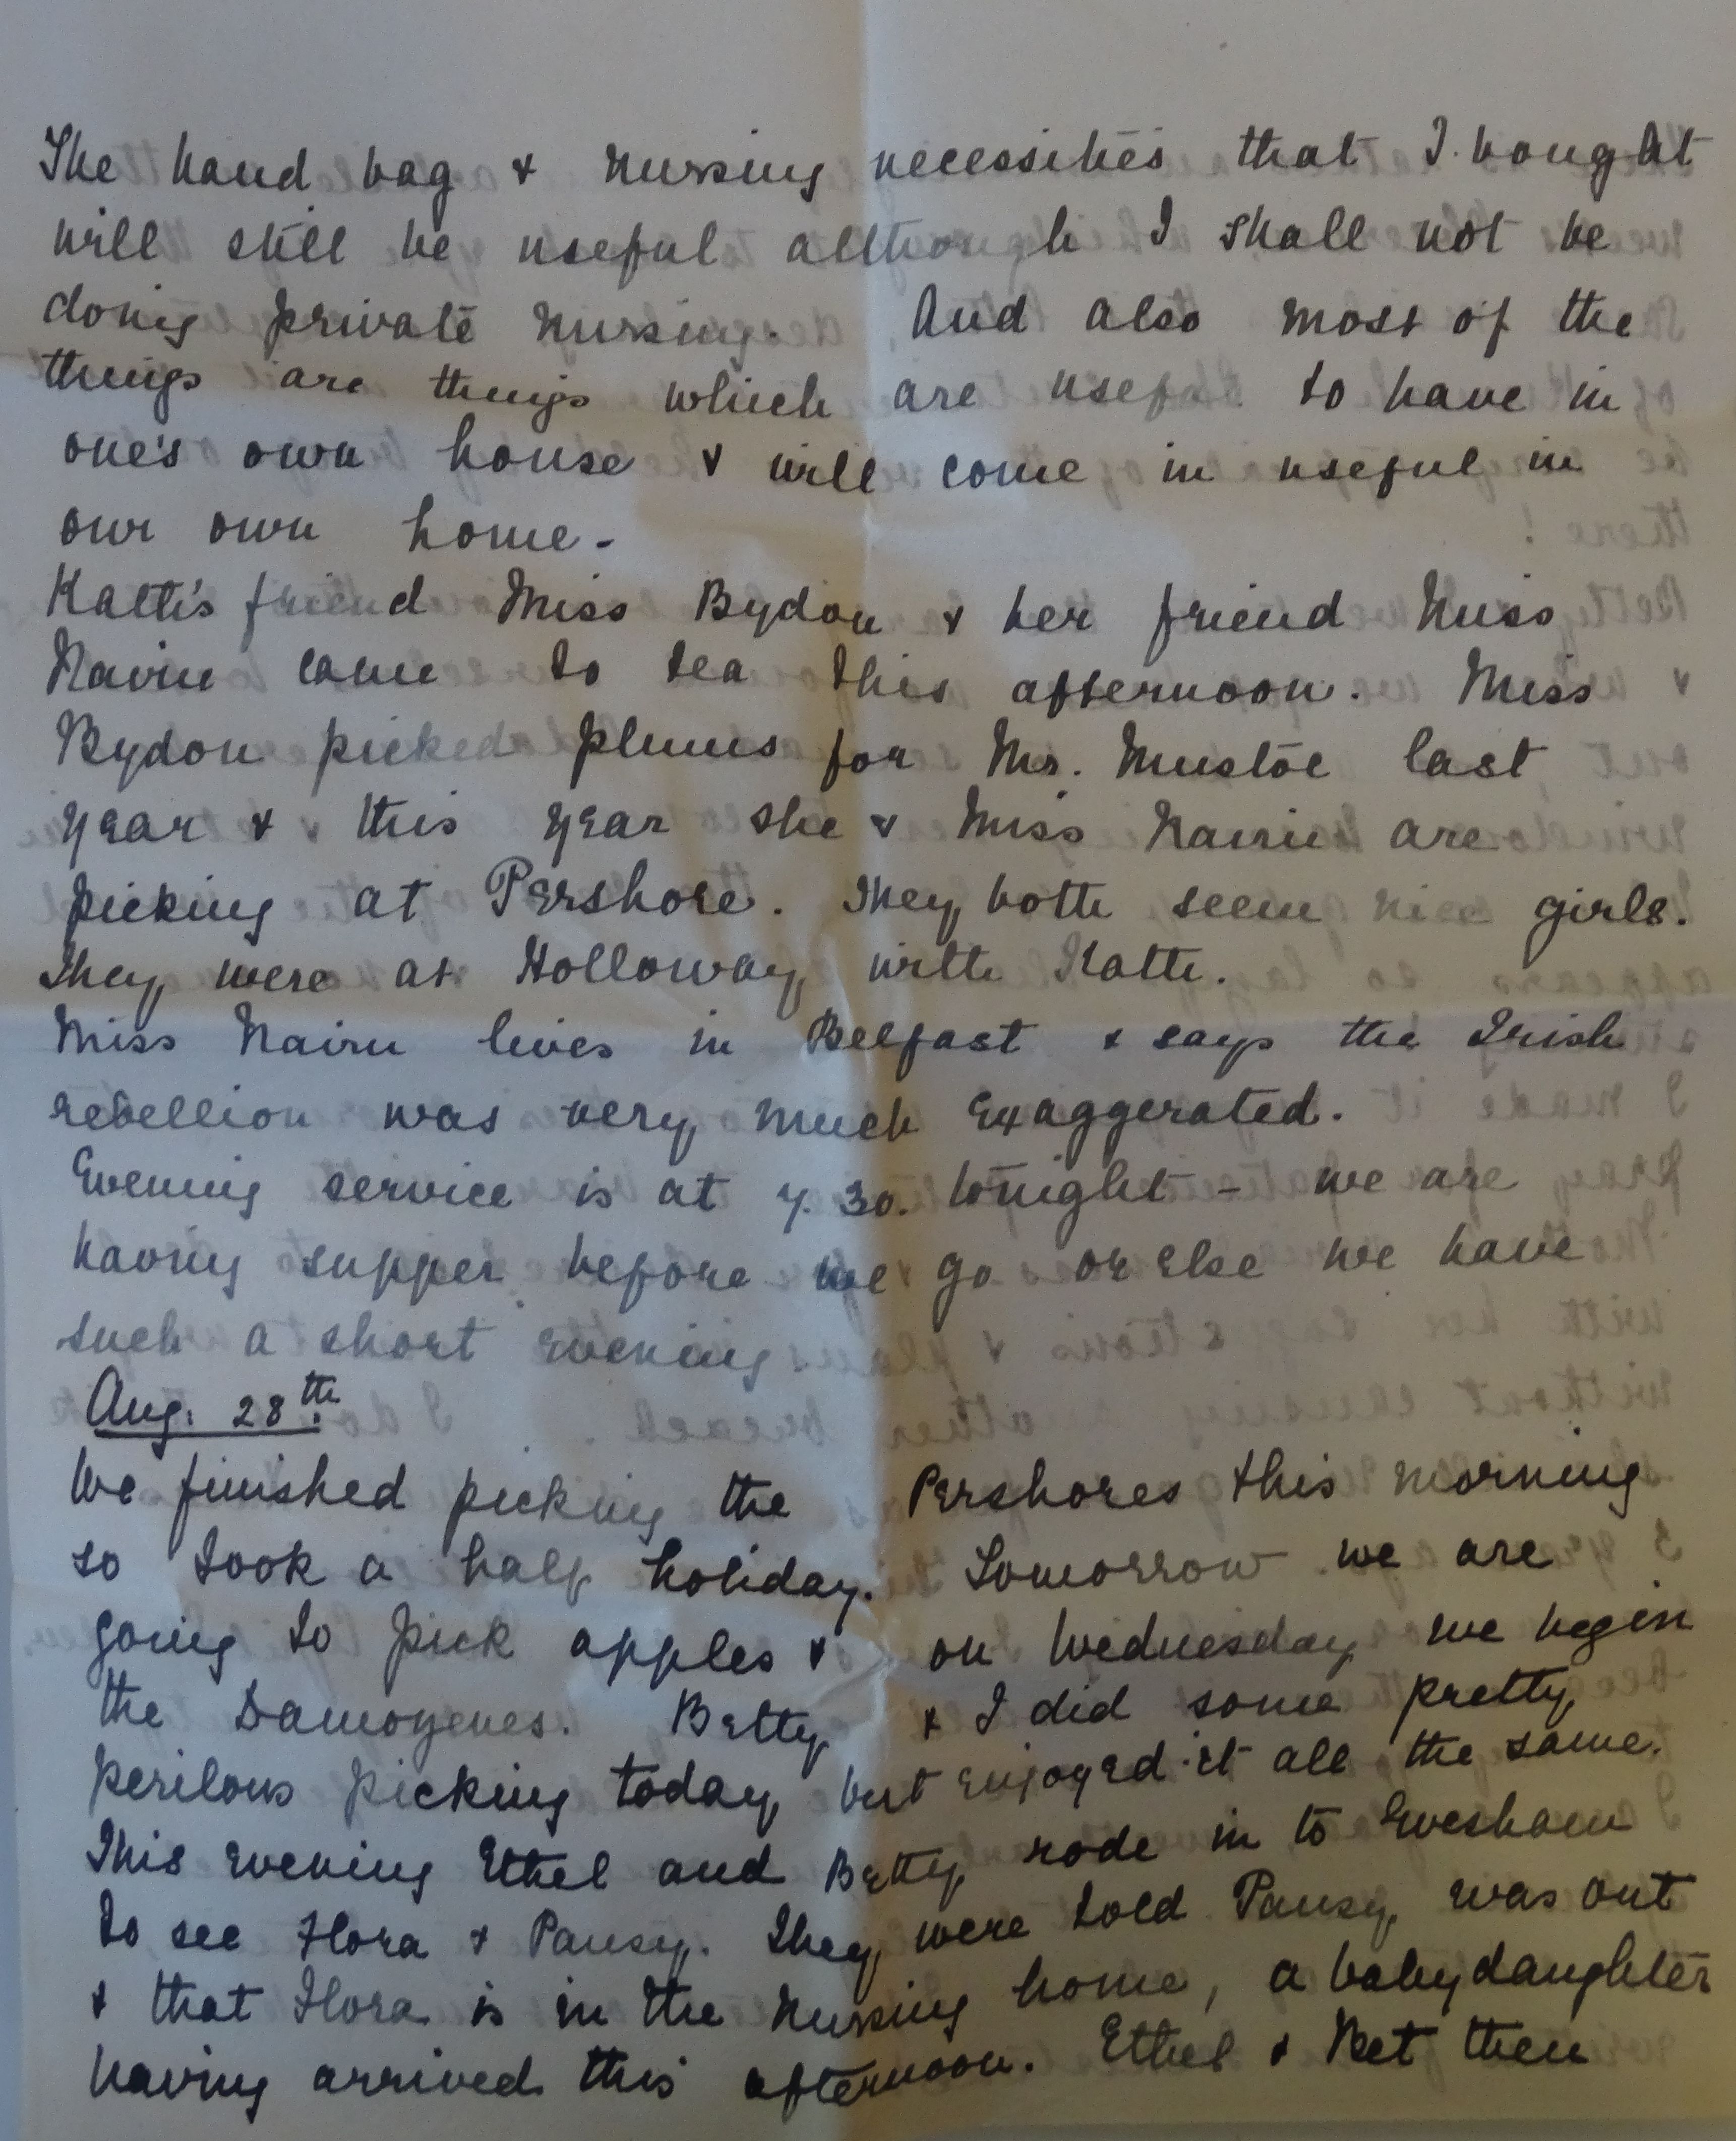 The hand bag & nursing necessities that I bought
will still be useful although I shall not be
doing private nursing. And also most of the
things are things which are useful to have in
one's own house & will come in useful in
our own home -
Kath's friend Miss Bydon & her friend Miss
Nairn came to tea this afternoon. Miss
Bydon picked plums for Mr. Mustoe last
year & this year she & Miss Nairn are
picking at Pershore. They both seem nice girls.
They were at Holloway with Kath.
Miss Nairn lives in Belfast & says the Irish
rebellion was very much exaggerated.
Evening service is at 7.30. tonight - we are
having supper before we go or else we have
such a short evening
Aug. 28th.
We finished picking the Pershores this morning
so took a half holiday. Tomorrow we are
going to pick apples & on Wednesday we begin
the Damozenes. Betty & I did some pretty
perilous picking today but enjoyed it all the same.
This evening Ethel and Betty rode in to Evesham
to see Flora & Pansy. They were told Pansy was out
& that Flora is in the nursing home, a baby daughter
having arrived this afternoon. Ethel & Bet then